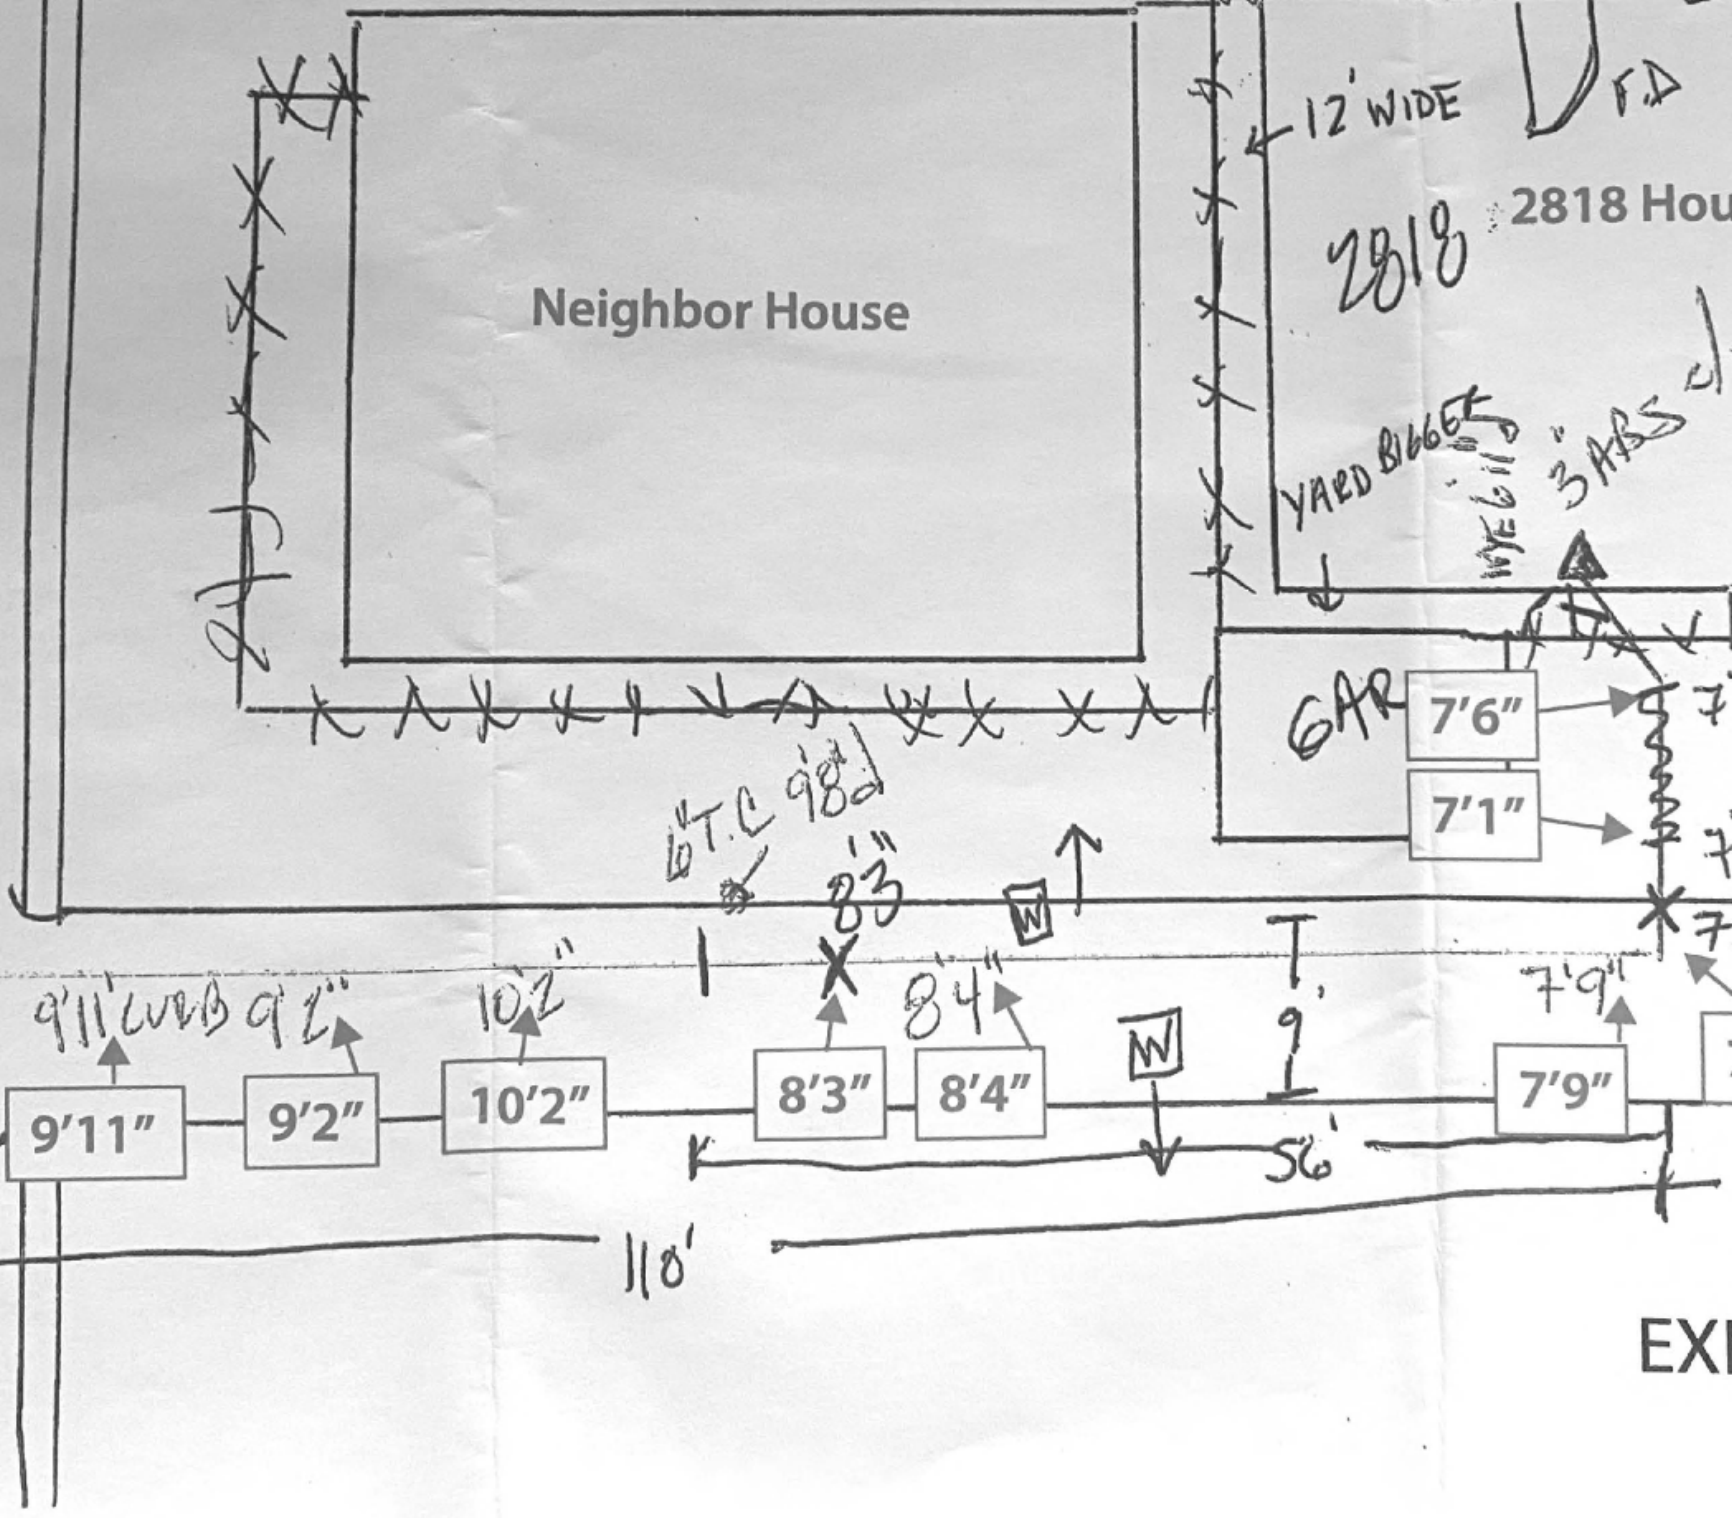 F.D
12' WIDE
2818 Hou
2818
Neighbor House
YARD BIGGER
WYE 6'11"D
3" ABS d
GAR
7'6"
7'
7'1"
7'
6" T.C 9'8"d
8'3"
W
7'
9'11" CURB
9'2"
10'2"
8'4"
7'9"
9'
W
9'11"
9'2"
10'2"
8'3"
8'4"
7'9"
56'
110'
EXI